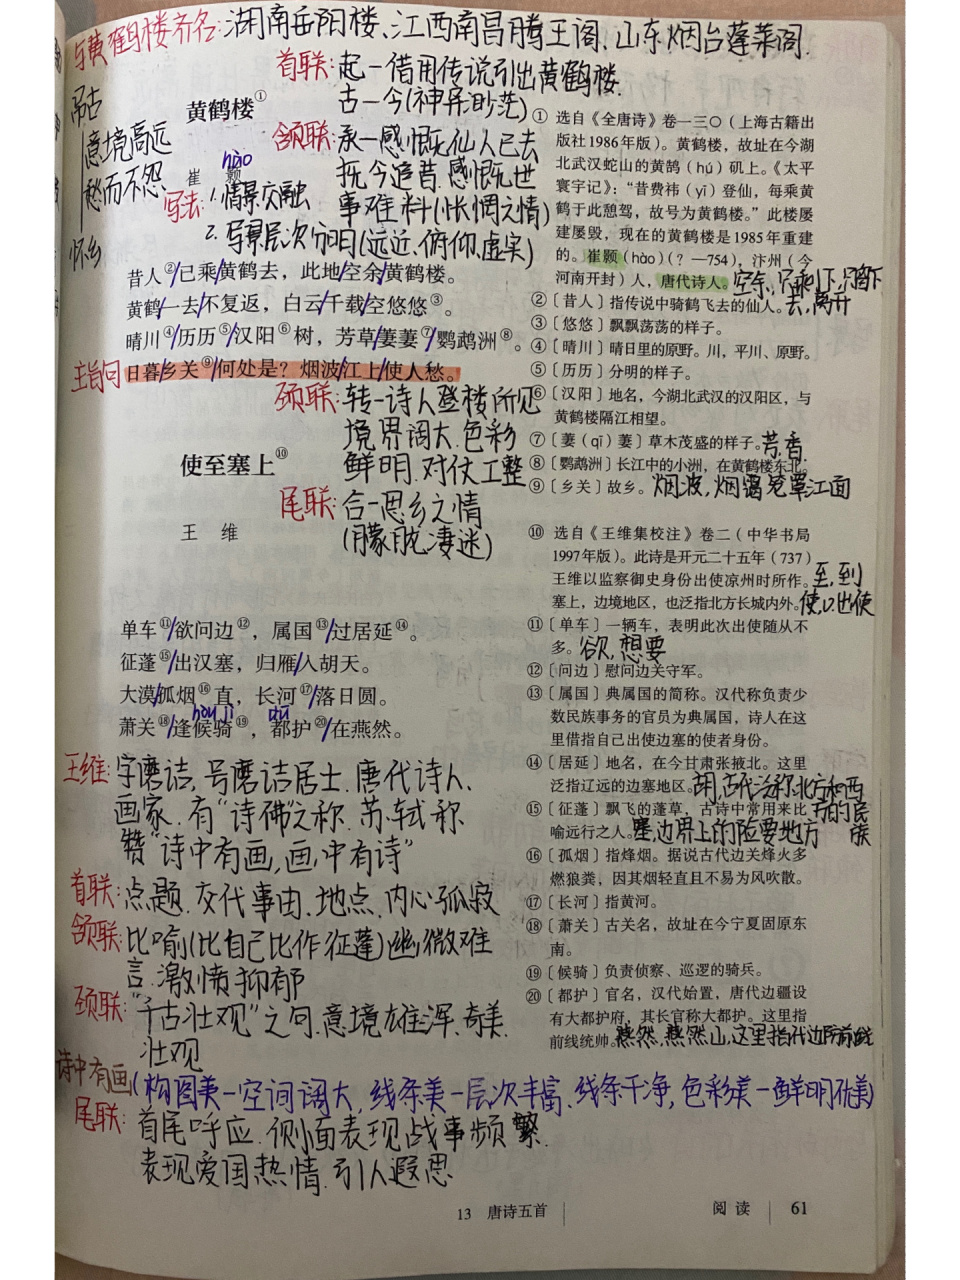 与黄鹤楼齐名:湖南岳阳楼、江西南昌滕王阁、山东烟台蓬莱阁.
首联:起一借用传说引出黄鹤楼.
古一今(神异渺茫)
吊古
意境高远
愁而不怨
怀乡
黄鹤楼①
颔联:承一感慨仙人已去
抚今追昔.感慨世
事难料(怅惘之情)
hào
崔 颢
写法:1.情景交融
2.写景层次分明(远近、俯仰、虚实)
昔人②/已乘/黄鹤去,此地/空余/黄鹤楼。
黄鹤/一去/不复返,白云/千载/空悠悠③。
晴川④/历历⑤/汉阳⑥树,芳草/萋萋⑦/鹦鹉洲⑧。
主旨句 日暮/乡关⑨/何处是?烟波/江上/使人愁。
颈联:转一诗人登楼所见
境界阔大.色彩
鲜明.对仗工整
尾联:合一思乡之情
(朦胧凄迷)
使至塞上⑩
王 维
单车⑪/欲问边⑫,属国⑬/过居延⑭。
征蓬⑮/出汉塞,归雁/入胡天。
大漠/孤烟⑯直,长河⑰/落日圆。
hòu jì dū
萧关⑱/逢候骑⑲,都护⑳/在燕然。
王维:字摩诘,号摩诘居士.唐代诗人、
画家.有“诗佛”之称.苏轼称
赞“诗中有画,画中有诗”
首联:点题.交代事由、地点、内心孤寂
颔联:比喻(比自己比作征蓬)幽微难
言.激愤抑郁
颈联:“千古壮观”之句.意境雄浑、奇美、
壮观
诗中有画(构图美一空间阔大,线条美一层次丰富、线条干净,色彩美一鲜明优美)
尾联:首尾呼应.侧面表现战事频繁.
表现爱国热情.引人遐思
① 选自《全唐诗》卷一三〇(上海古籍出
版社1986年版)。黄鹤楼,故址在今湖
北武汉蛇山的黄鹄(hú)矶上。《太平
寰宇记》:“昔费祎(yī)登仙,每乘黄
鹤于此憩驾,故号为黄鹤楼。”此楼屡
建屡毁,现在的黄鹤楼是1985年重建
的。崔颢(hào)(?—754),汴州(今
河南开封)人,唐代诗人。空余,只剩下,只留下
②〔昔人〕指传说中骑鹤飞去的仙人。去,离开
③〔悠悠〕飘飘荡荡的样子。
④〔晴川〕晴日里的原野。川,平川、原野。
⑤〔历历〕分明的样子。
⑥〔汉阳〕地名,今湖北武汉的汉阳区,与
黄鹤楼隔江相望。
⑦〔萋(qī)萋〕草木茂盛的样子。芳,香.
⑧〔鹦鹉洲〕长江中的小洲,在黄鹤楼东北。
⑨〔乡关〕故乡。烟波,烟霭笼罩江面
⑩ 选自《王维集校注》卷二(中华书局
1997年版)。此诗是开元二十五年(737)
王维以监察御史身份出使凉州时所作。至,到
塞上,边境地区,也泛指北方长城内外。使,出使
⑪〔单车〕一辆车,表明此次出使随从不
多。欲,想要
⑫〔问边〕慰问边关守军。
⑬〔属国〕典属国的简称。汉代称负责少
数民族事务的官员为典属国,诗人在这
里借指自己出使边塞的使者身份。
⑭〔居延〕地名,在今甘肃张掖北。这里
泛指辽远的边塞地区。胡,古代泛称北方和西
方的民族
⑮〔征蓬〕飘飞的蓬草,古诗中常用来比
喻远行之人。塞,边界上的险要地方
⑯〔孤烟〕指烽烟。据说古代边关烽火多
燃狼粪,因其烟轻直且不易为风吹散。
⑰〔长河〕指黄河。
⑱〔萧关〕古关名,故址在今宁夏固原东
南。
⑲〔候骑〕负责侦察、巡逻的骑兵。
⑳〔都护〕官名,汉代始置,唐代边疆设
有大都护府,其长官称大都护。这里指
前线统帅。燕然,燕然山,这里指代边防前线
13 唐诗五首
阅读 61